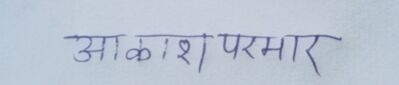 आकाश परमार